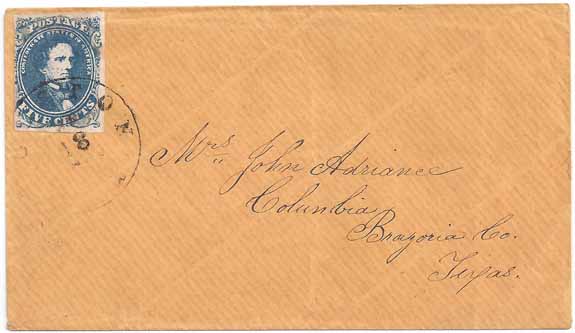 POSTAGE
CONFEDERATE STATES OF AMERICA
FIVE CENTS
TON
8
Mrs. John Adriance
Columbia
Brazoria Co.
Texas.